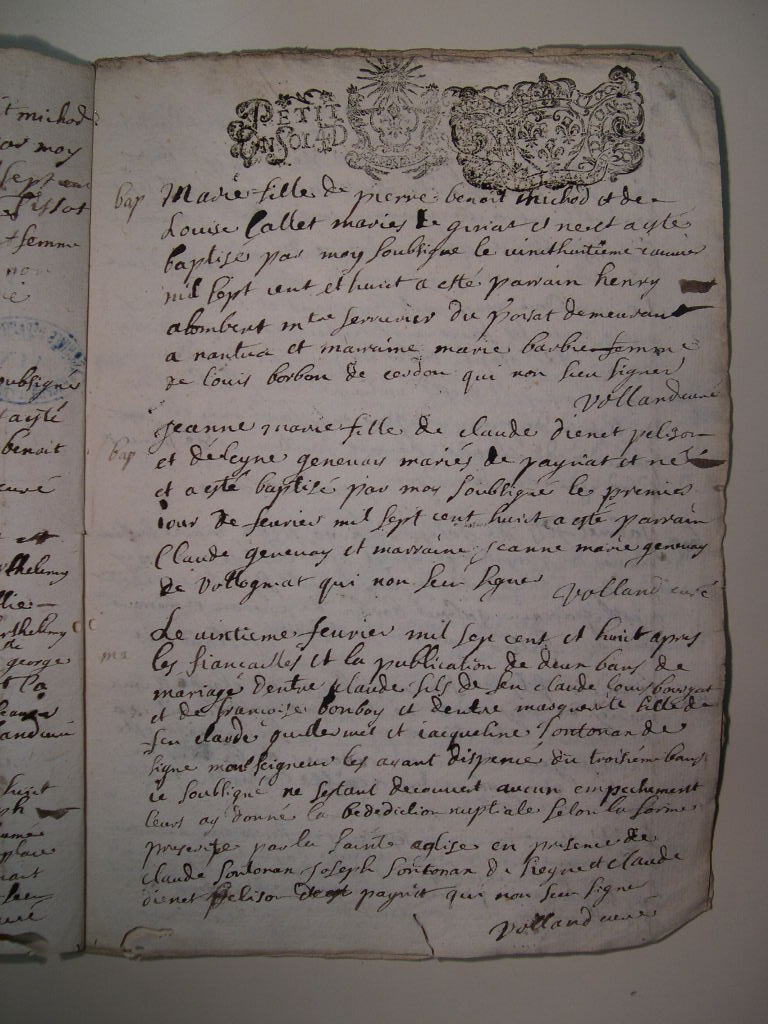 t michod
par moy
sept cent
pissot
femme
non
oubsigné
a esté
benoit
curé
rthelemy
lie
rthelemy
de
george
t la
huict
place
PETIT
UN SOL 4D
bap Marie fille de pierre benoit michod et de
Louise Callet mariés de giriat et neret a esté
baptisé par moy soubsigné le vinthuitieme ianvier
mil sept cent et huict a esté parrain henry
alombert mtre serrurier du poisat demeurant
a nantua et marraine marie barbie femme
de louis borbon de cerdon qui non sceu signer
Volland curé
bap Jeanne marie fille de claude dienet pelison
et de leyne genevay mariés de payriat et né
et a esté baptisé par moy soubsigné le premier
iour de fevrier mil sept cent huict a esté parrain
Claude genevay et marraine jeanne marie genevay
de Vollogniat qui non sceu signer Volland curé
ma Le vintieme fevrier mil sept cent et huict apres
les fiancailles et la publication de deux bans de
mariage d'entre claude fils de feu claude louis
et de francoise bonboy et dentre marguerite fille de
feu claude guillermet et iacqueline sontonan de
signe monseigneur les ayant dispencé du troisiéme bans
ie soubsigné ne sestant decouvert aucun empechement
leurs ay donné la bededicion nuptiale selon la forme
prescripte par la sainte eglise en presence de
claude sontonan joseph sontonan de sieyne et claude
dienet pelison de payriat qui non sceu signe
Volland curé